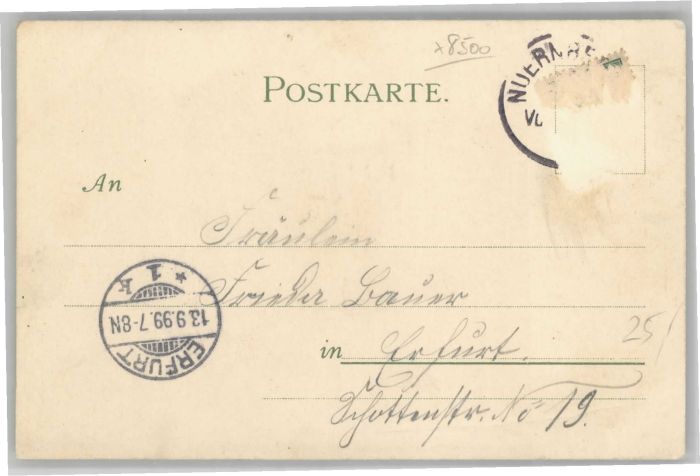 x8500
NUERNBE
POSTKARTE.
An
Fräulein
Frieda Bauer
in Erfurt.
Schottenstr. No 19.
25
* 1 k
13.9.99.7-8N
ERFURT